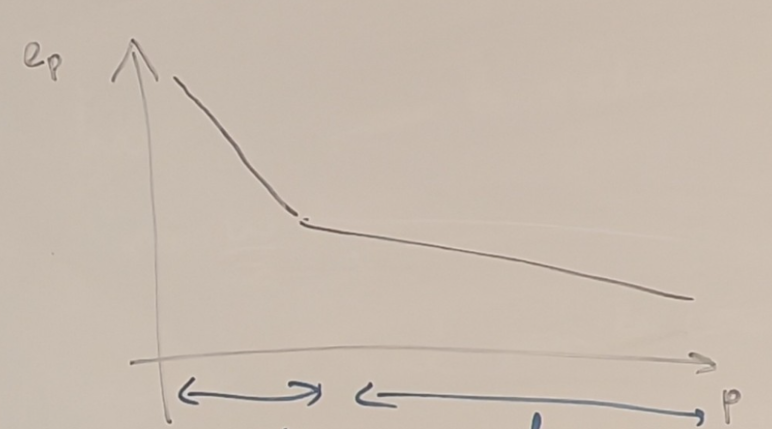 e_p
p